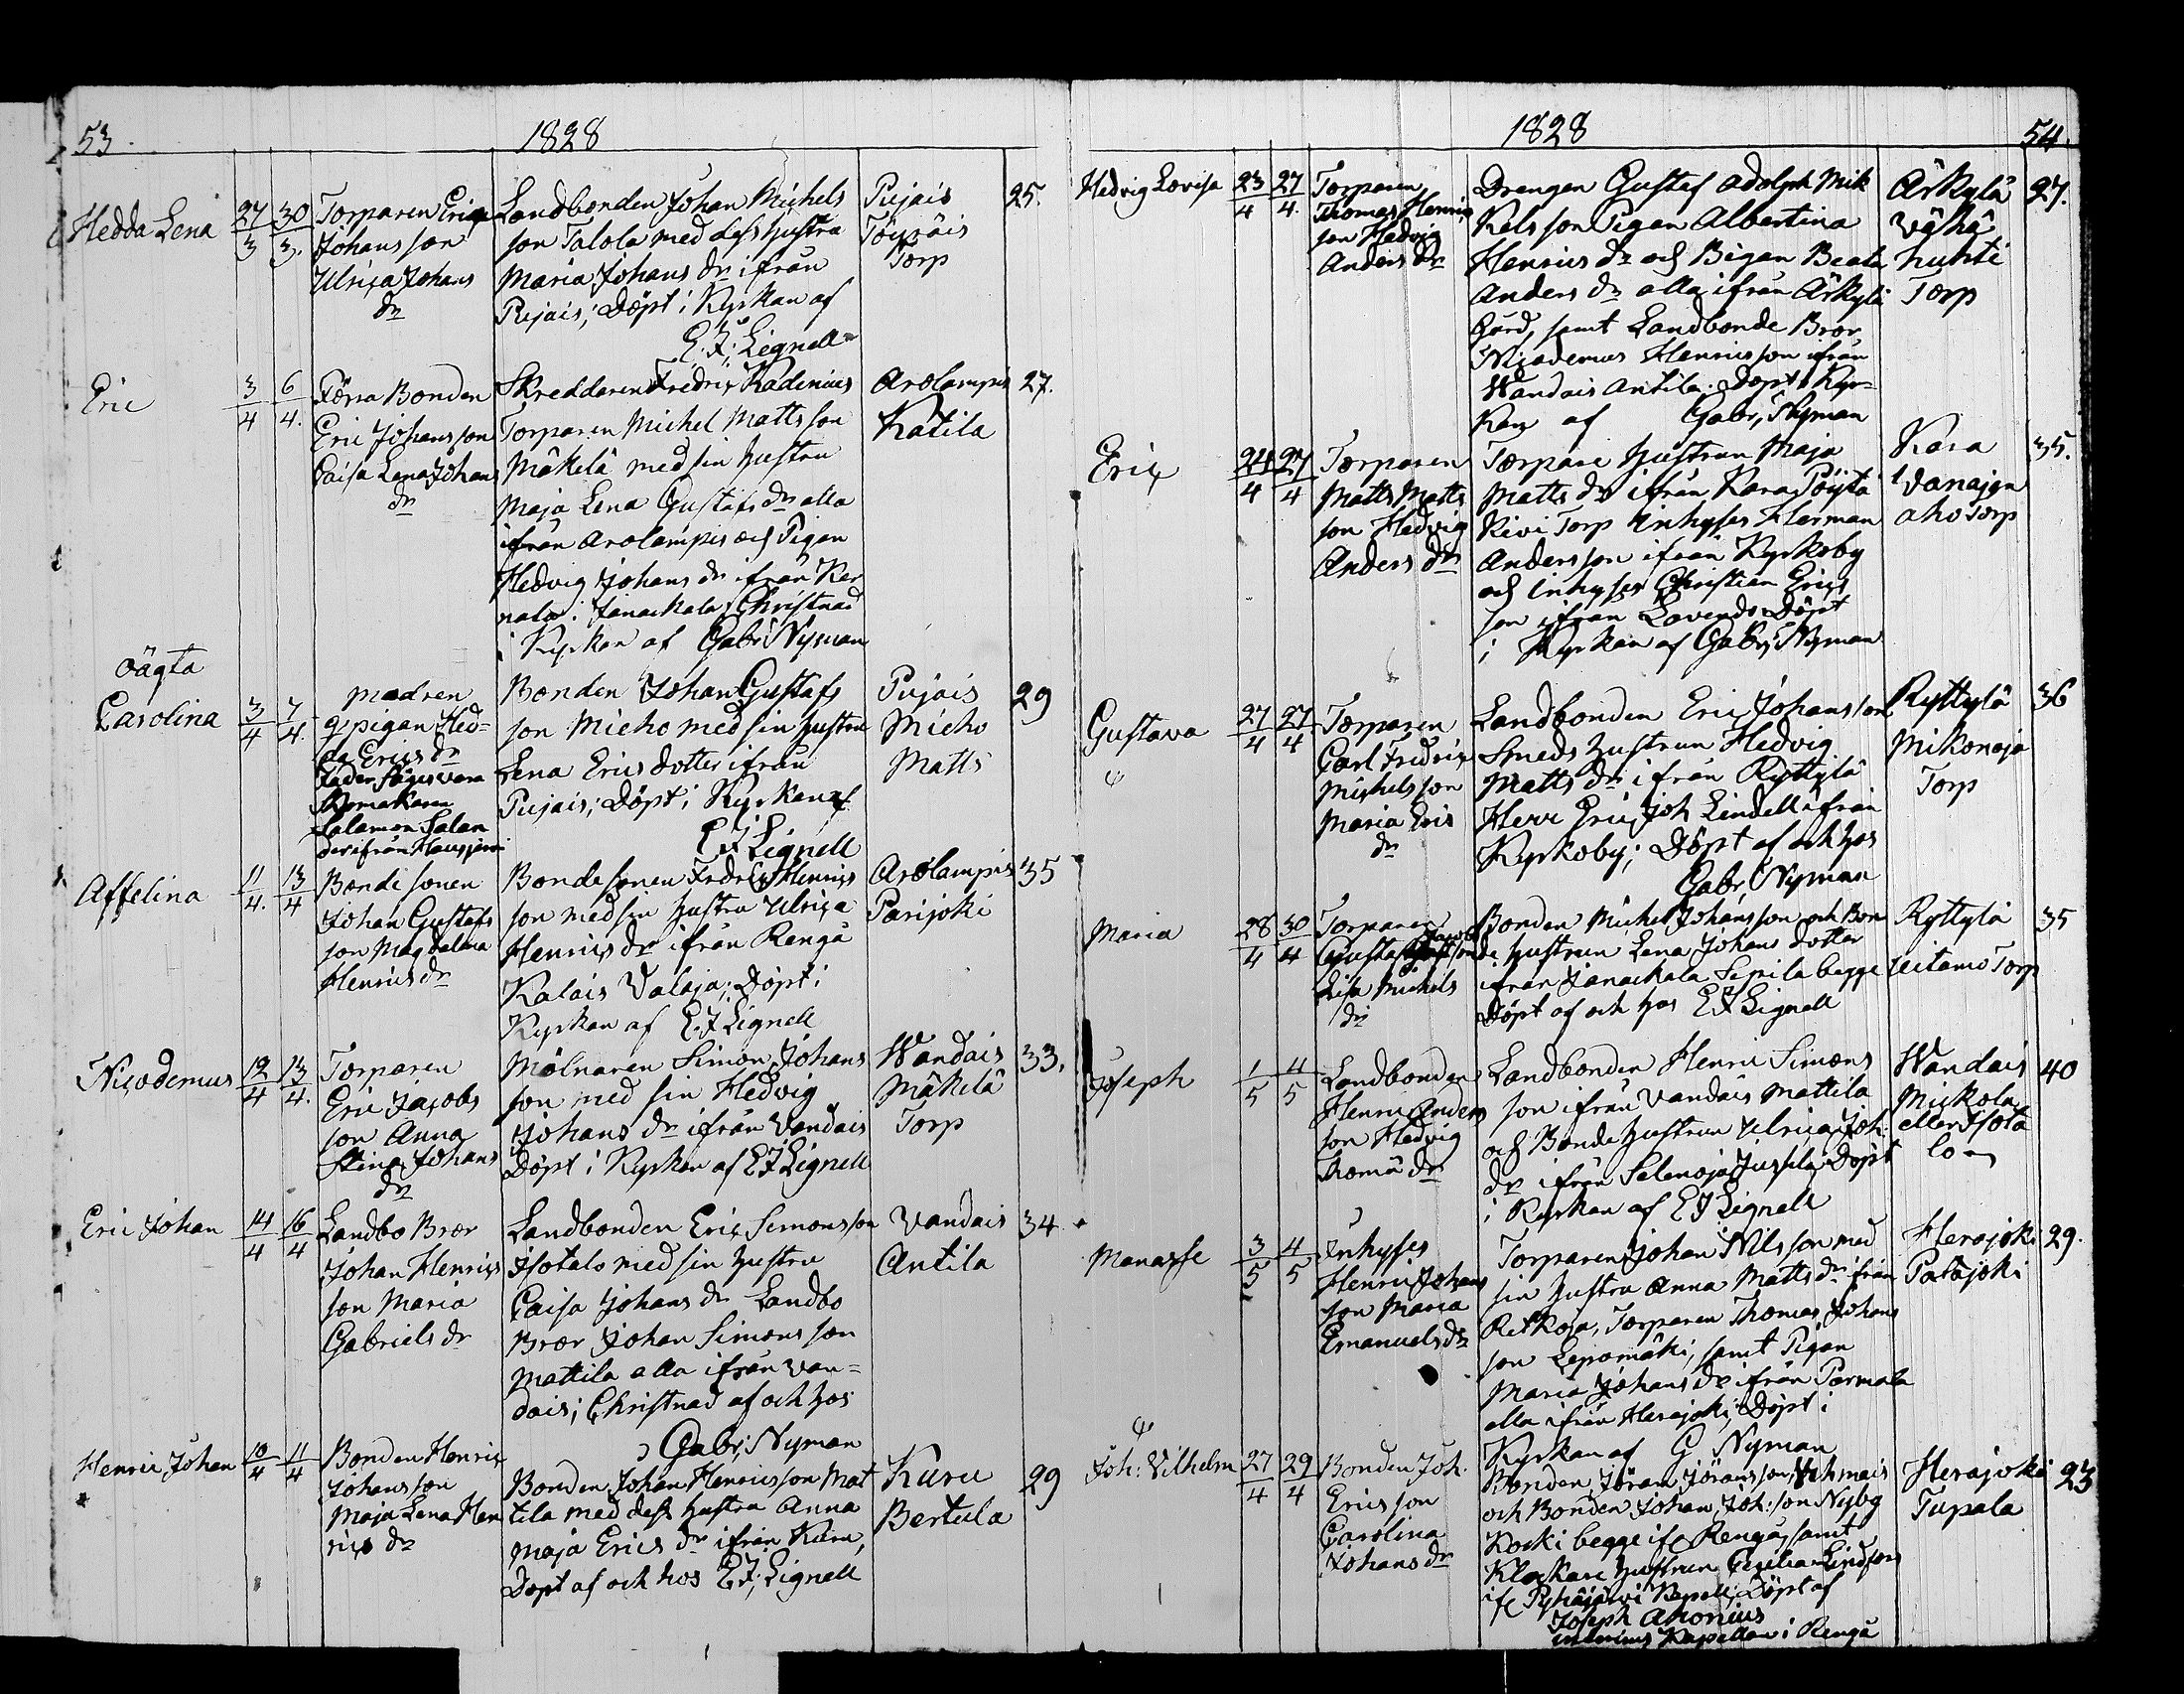 53.
1828
Hedda Lena
27/3
30/3.
Torparen Eric
Johans son
Ulrica Johans
dr
Landbonden Johan Michels
son Talola med dess hustru
Maria Johans dr ifrån
Pujais; Döpt i Kyrkan af
E. J. Lignell
Pujais
Töyräis
Torp
25.
Eric
3/4
6/4.
Förra Bonden
Eric Johansson
Caisa Lena Johans
dr
Skreddaren Fredric Kadenius
Torparen Michel Matts son
Mäkelä med sin hustru
Maja Lena Gustafs dr alla
ifrån Arolampis och Pigan
Hedvig Johans dr ifrån Ker
nala i Janackala Christnad
i Kyrkan af Gabr: Nyman
Arolampis
Katila
27.
oägta
Carolina
3/4
7/4.
modren
qpigan Hed-
da Erics dr
Fader säges vara
Skomakaren
Salamon Salan
der ifrån Hausjervi
Bonden Johan Gustafs
son Micho med sin hustru
Lena Erics dotter ifrån
Pujais; Döpt i Kyrkan af
E J Lignell
Pujais
Micho
Matts
29
Affelina
11/4.
13/4
Bonde sonen
Johan Gustafs
son Magdalena
Henrics dr
Bonde sonen Fredric Henrics
son med sin hustru Ulrica
Henrics dr ifrån Rengå
Kalais Valaja; Döpt i
Kyrkan af E. J Lignell
Arolampis
Parijoki
35
Nicodemus
12/4
13/4.
Torparen
Eric Jacobs
son Anna
Stina Johans
dr
Mölnaren Simon Johans
son med sin Hedvig
Johans dr ifrån Vandais
Döpt i Kyrkan af E J Lignell
Wandais
Mäkelä
Torp
33.
Eric Johan
14/4
16/4
Landbo Bror
Johan Henrics
son Maria
Gabriels dr
Landbonden Eric Simonsson
Isotalo med sin hustru
Caisa Johans dr Landbo
Bror Johan Simons son
Mattila alla ifrån Van=
dais; Christnad af och hos
Gabr: Nyman
Vandais
Antila
34.
Henric Johan
10/4
11/4
Bonden Henric
Johans son
Maja Lena Hen
rics dr
Bonden Johan Henricsson Mat
tila med dess hustru Anna
Maja Erics dr ifrån Kuru,
Döpt af och hos E J; Lignell
Kuru
Bertula
29
1828
54.
Hedvig Lovisa
23/4
27/4.
Torparen
Thomas Henric
son Hedvig
Anders dr
Drengen Gustaf Adolph Mik
kels son Pigan Albertina
Henrics dr och Pigan Beata
Anders dr alla ifrån Ärkylä
Gård, samt Landbonde Bror
Nicodemus Henricsson ifrån
Wandais Antila. Döpt i Kyr=
kan af Gabr; Nyman
Ärkylä
Vähä
huhti
Torp
27.
Eric
24/4
27/4
Torparen
Matts Matts
son Hedvig
Anders dr
Torpare hustrun Maja
Matts dr ifrån Kara Pöytä
Kivi Torp Inhyses Herman
Andersson ifrån Kyrkoby
och Inhyses Christian Erics
son ifrån Lavendo Döpt
i Kyrkan af Gabr; Nyman
Kara
Vanajan
aho Torp
35.
Gustava
27/4
27/4
Torparen
Carl Fredric
Michels son
Maria Erics
dr
Landbonden Eric Johansson
Smeds hustrun Hedvig
Matts dr ifrån Ryttylä
Herr Eric Joh Lindell ifrån
Kyrkoby; Döpt af och hos
Gabr; Nyman
Ryttylä
Mikonoja
Torp
36
Maria
28/4
30/4
Torparen
Gustaf son
Lisa Michels
dr
Bonden Michel Johansson och Bon
de hustrun Lena Johans dotter
ifrån Janackala Sepila begge
Döpt af och hos E J Lignell
Ryttylä
Leitamo Torp
35
Joseph
1/5
4/5
Landbonden
Henric Anders
son Hedvig
Thomä dr
Landbonden Henric Simons
son ifrån Vandais Mattila
och Bonde hustrun Ulrica Joh:
dr ifrån Selinoja Jussila; Döpt
i Kyrkan af E J Lignell
Wandais
Mickola
eller Isota
lo
40
Manasse
3/5
4/5
Inhyses
Henric Johans
son Maria
Emanuels dr
Torparen Johan Nilsson med
sin hustru Anna Matts dr ifrån
Retkoja, Torparen Thomas Johans
son Lepomäki, samt Pigan
Maria Johans dr ifrån Parmala
alla ifrån Herajoki; Döpt i
Kyrkan af G Nyman
Herajoki
Patajoki
29.
Joh: Vilhelm
27/4
29/4
Bonden Joh.
Erics son
Carolina
Johans dr
Bonden Jöran Jöransson,
och Bonden Johan Joh: son Nyby
Kocki begge if Rengå, samt
Klockare hustrun Cecilia
if Pyhäjärvi Kapell; Döpt af
Joseph Ahonius
Kapellan i Rengå
Herajoki
Tupala
23